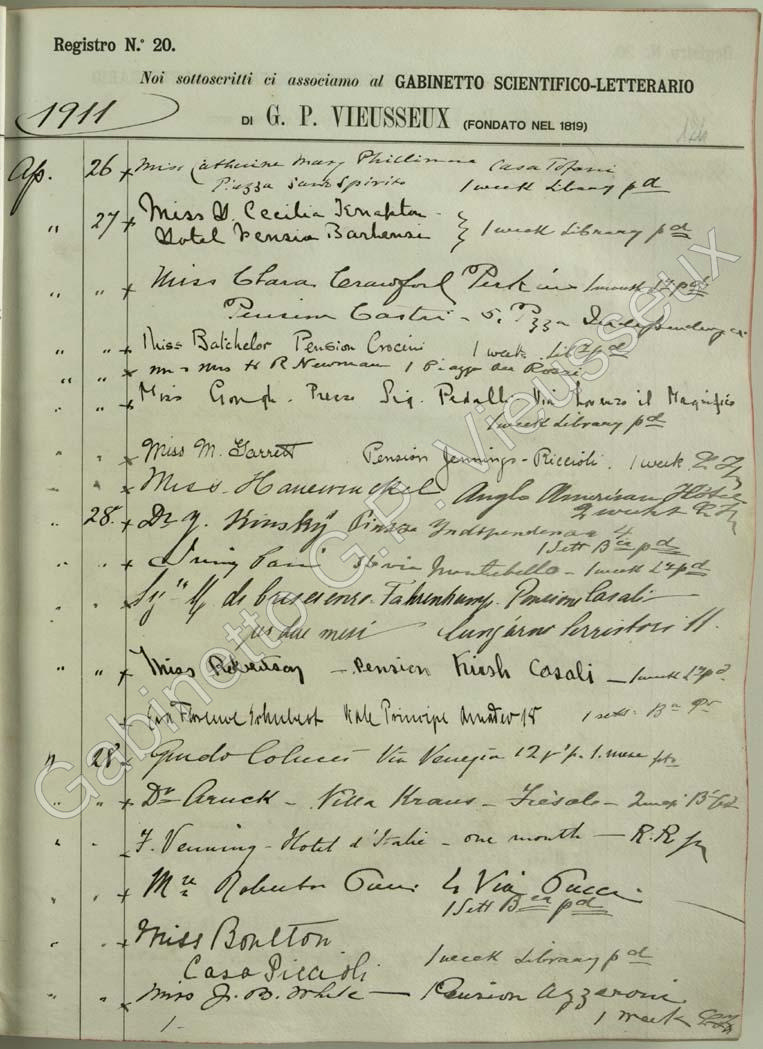 Registro N.° 20.
Noi sottoscritti ci associamo al GABINETTO SCIENTIFICO-LETTERARIO
1911 DI G. P. VIEUSSEUX (FONDATO NEL 1819)
Ap. 26 x Miss Catherine Mary Phillimore Casa Tofani
Piazza Santo Spirito 1 week Library pd
" 27 x Miss Cecilia
Hotel Pensio Barbensi } 1 week Library pd
" " x Miss Clara Crawford Perkins 1 month pd
Pension Castri - 5. Pzza Independenza
" " x Miss Batchelor Pension Crocini 1 week pd
" " x Mr & Mrs H R Newman 1 Piazza dei Rossi
" x Miss Gough. Presso Sig. Pedalli Via Lorenzo il Magnifico
1 week Library pd
x Miss M. Garrett Pension Jennings-Riccioli. 1 week
x Miss. Anglo American Hotel
2 weeks
" 28. x Dr Kinsky Piazza Independenza 4
1 Sett pd
" " x 36 via Montebello - 1 week pd
" " x M. de Crescenzo-Fahrenkamp. Pensione Casali
per due mesi Lungarno Serristori 11.
" " x Miss Robertson - Pension Kirsh Casali - 1 week pd
x Florence Schubert Viale Principe Amadeo 18 1 sett.
" 28 x Guido Colucci Via Venezia 12 1. mese
" " x Dr - Villa Kraus - Fiesole -
" " F. Venning - Hotel d'Italie - one month - R.R
" " x Roberto 4 Via Pucci
1 Sett pd
" " x Miss Boulton
Casa Piccioli 1 week Library pd
" " x Miss J. B. White - Pension Azzeroni
1 week
Gabinetto G.P. Vieusseux